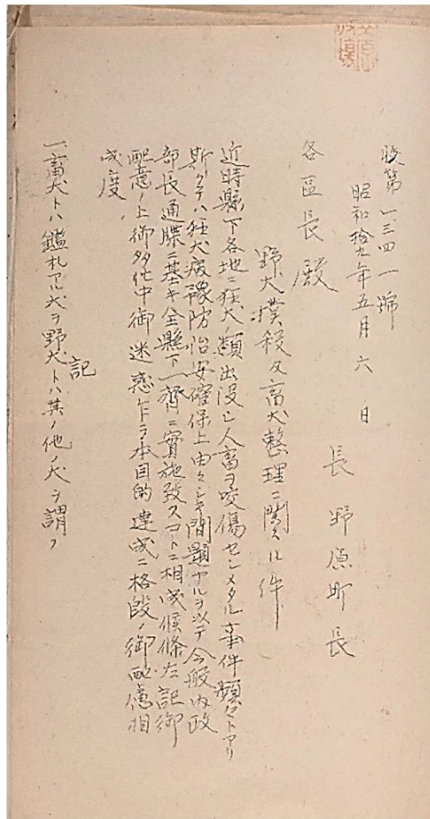 収第一三四一號
昭和拾九年五月六日
長野原町長
各區長殿
野犬撲殺及畜犬整理ニ関スル件
近時縣下各地ニ狂犬ノ類出没シ人畜ヲ咬傷センメタル事件頻々トアリ
斯クテハ狂犬病豫防治安確保上由々シキ問題ナルヲ以テ今般内政
部長通牒ニ基キ全縣下一齊ニ實施致スコトニ相成候條左記御
配意ノ上御多忙中御迷惑乍ラ本目的達成ニ格段ノ御配慮相
成度
記
一畜犬トハ鑑札アル犬ヲ野犬トハ其ノ他ノ犬ヲ謂フ